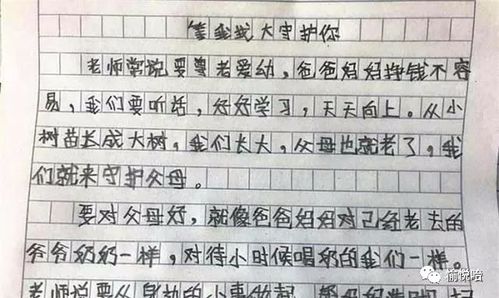 等我长大守护你
老师常说要尊老爱幼，爸爸妈妈挣钱不容
易，我们要听话，好好学习，天天向上。从小
树苗长成大树，我们长大，父母也就老了，我
们就来守护父母。
要对父母好，就像爸爸妈妈对己经老去的
爷爷奶奶一样，对待小时候喝奶的我们一样。
老师说要从身边的小事做起
愉悦哈